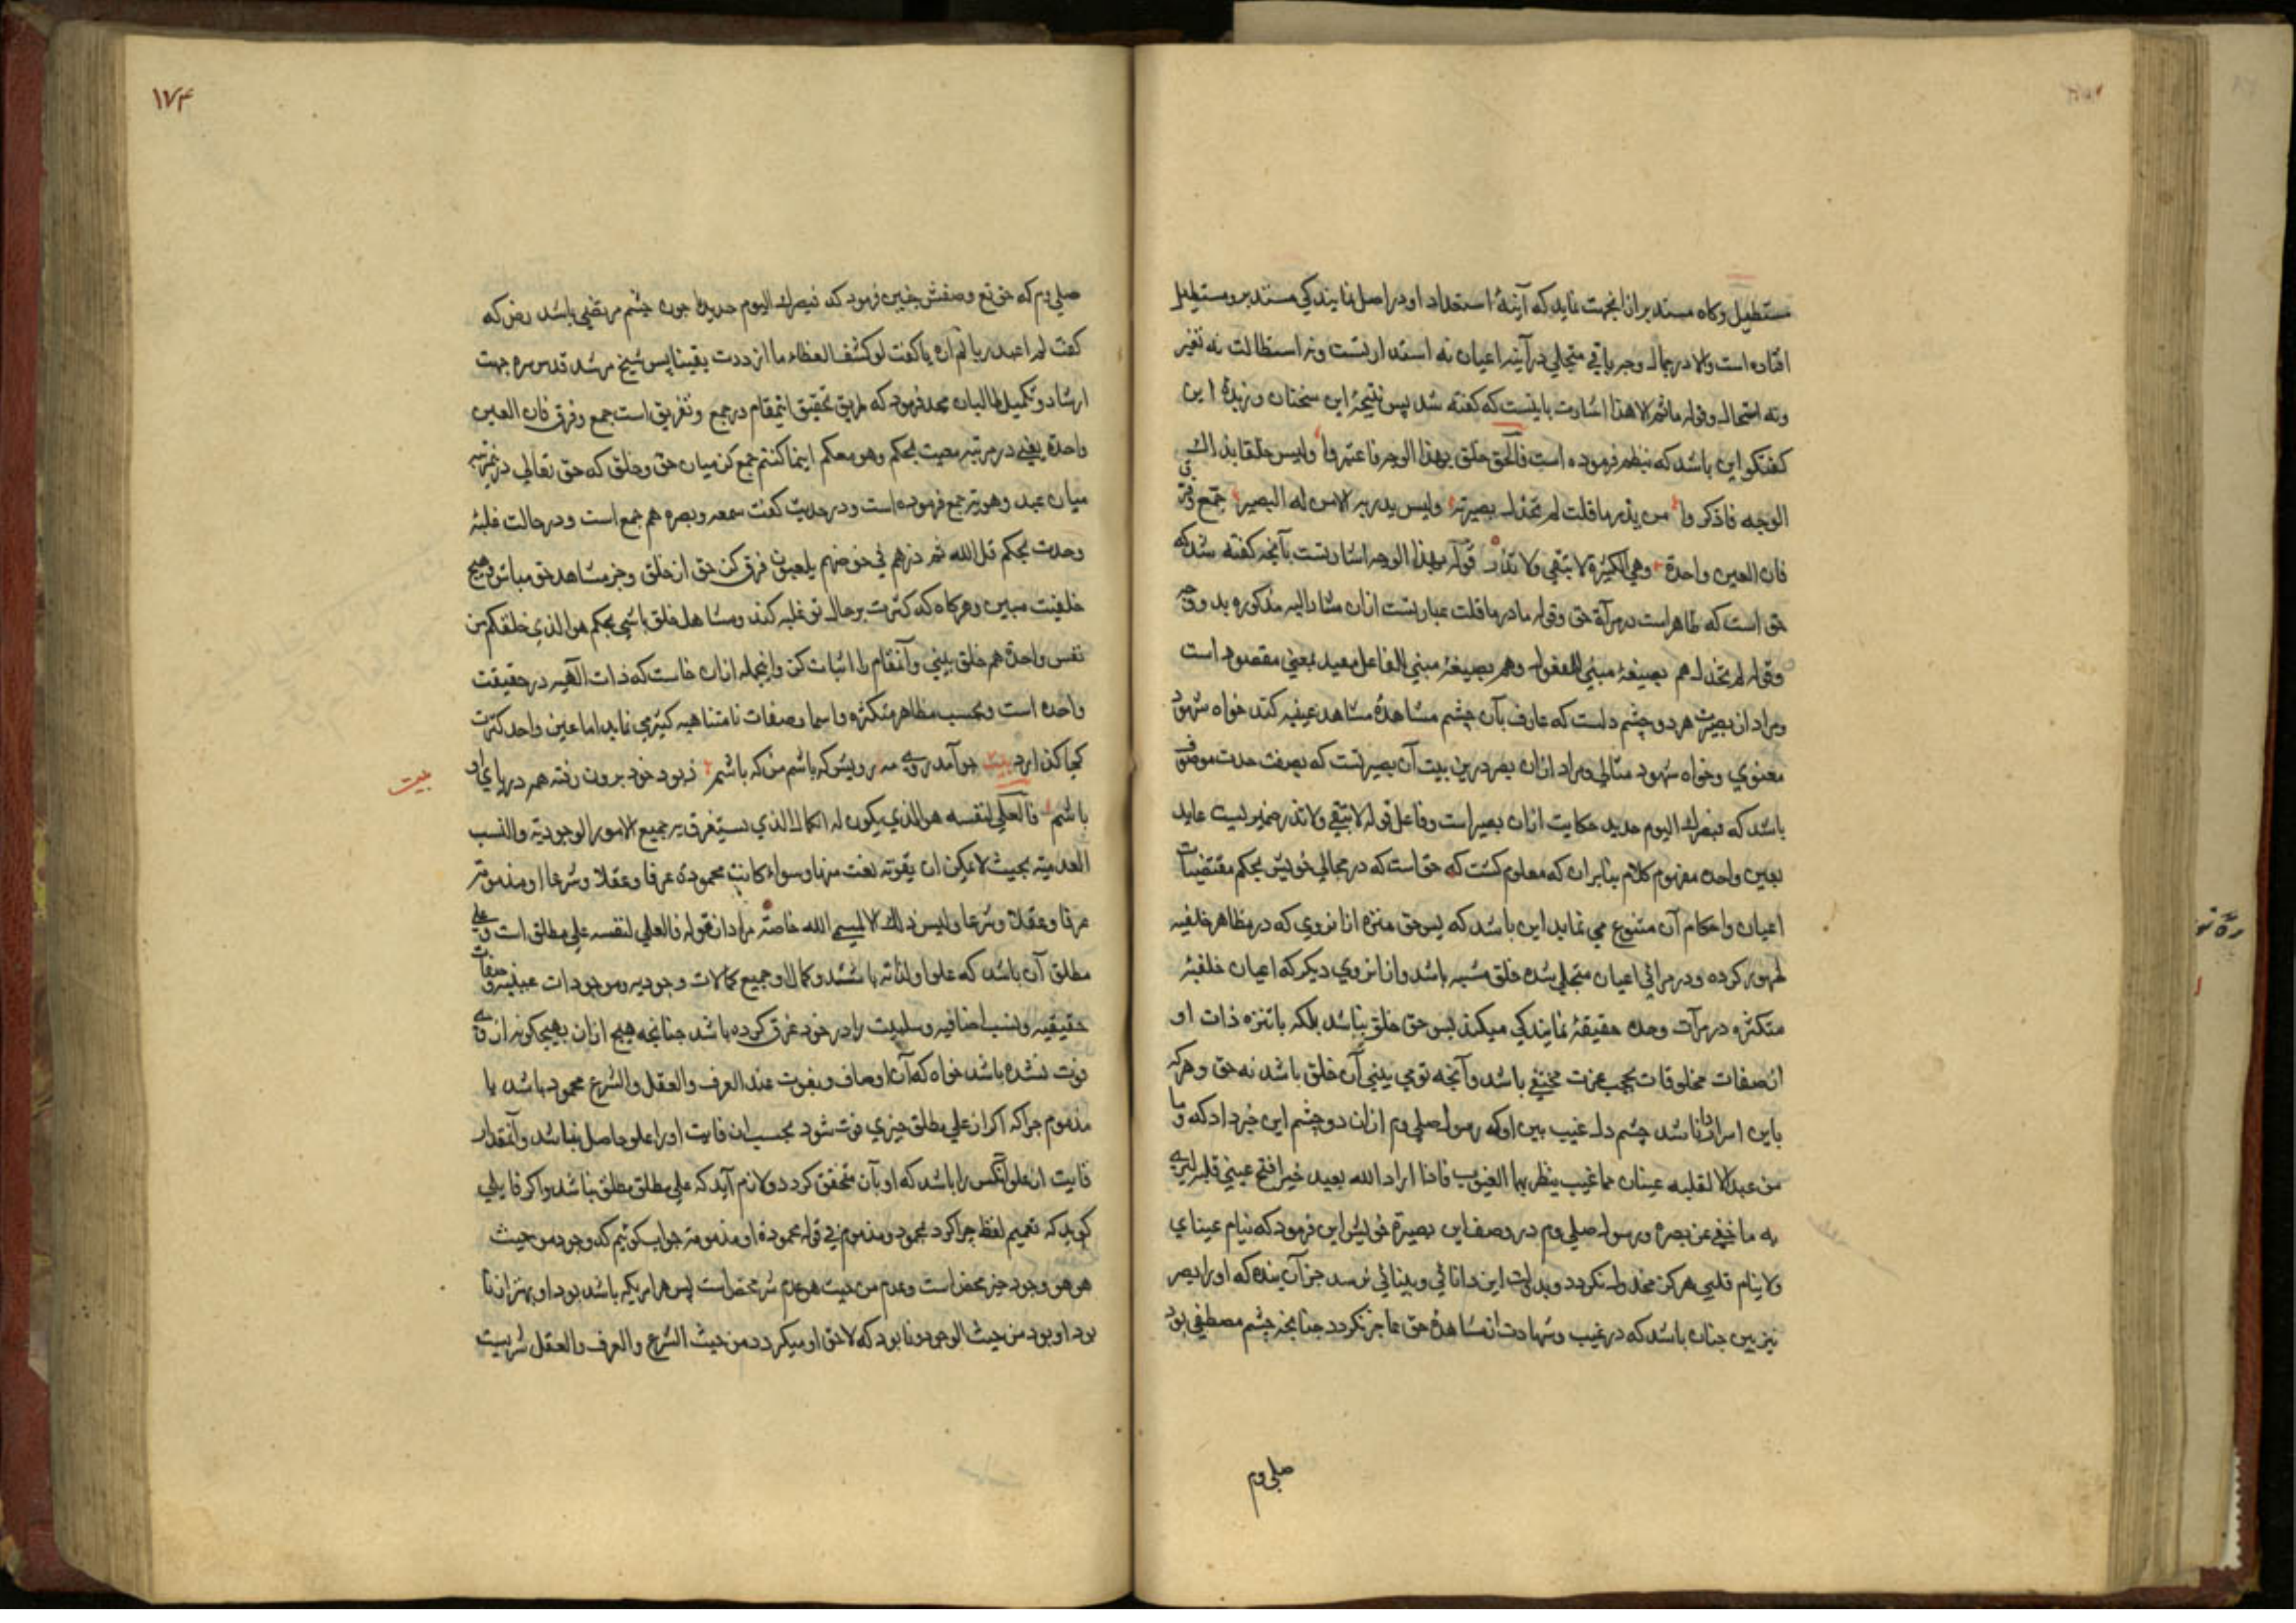 مستطیل وکاه مستدیر ازانجهت نماید که آینهٔ استعداد او در اصل نمایندکی مستدیر ومستطیل
افتاده است والا در جمال وجه باقی متجلی در آینه اعیان نه استدارتست ونه استطالت نه تغیر
ونه استحاله وقوله ماثم الا هذا اشارت باینست که کفته شد پس نتیجهٔ این سخنان وزبدهٔ این
کفتکو این باشد که بنظم فرموده است فالحق خلق بهذا الوجه فاعتبروا ولیس خلقا بذاك
الوجه فاذکروا من یدر ما قلت لم تخذل بصیرته ولیس یدریه الا من له البصر جمّع وفرّق
فان العین واحدة وهی الکثیرة لا تبقی ولا تذر قوله بهذا الوجه اشارتست بآنجه کفته شد که
حق است که ظاهر است در مرآة خلق وقوله ما در ما قلت عبارتست ازان مشار الیه مذکوره
وقوله لم تخذل هم بصیغهٔ مبنی للمفعول وهم بصیغهٔ مبنی للفاعل مفید بمعنی مقصود است
ومراد از بصیرت هر دو چشم دلست که عارف بآن چشم مشاهدهٔ مشاهد غیبیه کند خواه شهود
معنوی وخواه شهود مثالی ومراد ازان بصر درین بیت آن بصیرتست که بصفت حدت موصوف
باشد که فبصرك الیوم حدید حکایت ازان بصر است وفاعل قوله لا تبقی ولا تذر ضمیریست عاید
بعین واحده مفهوم کلام بنابران که معلوم کشت که حق است که در مجالی خویش بحکم مقتضیات
اعیان واحکام آن متنوع می نماید این باشد که پس حق منزه ازانروی که در مظاهر خلقیه
ظهور کرده ودر مرائی اعیان متجلی شده خلق مشبه باشد وازانروی دیکر که اعیان خلقیهٔ
متکثره در مرآت وحده حقیقهٔ نمایندکی میکند پس حق خلق نباشد بلکه باتنزه ذات او
از صفات مخلوقات بحجب عزت مختفی باشد وآنجه تو می بینی آن خلق باشد نه حق وهر که
باین اسرار دانا شد چشم دل غیب بین او که رسول صلی وم ازان دو چشم این خبر داد که وما
من عبد الا لقلبه عینان هما غیب ینظر بهما الغیوب فاذا اراد الله بعبد خیرا فتح عینی قلبه لیری
به ما خفی عن بصره ورسول صلی وم در وصف این بصیرة خویش این فرمود که ینام عینای
ولا ینام قلبی هرکز مخذول نکردد وبدولت این دانائی وبینائی نرسد جز آن بنده که او را بصر
تیز بین جنان باشد که در غیب وشهادت از مشاهدهٔ حق عاجز نکردد جنانجه چشم مصطفی بود
صلی وم
۱۷۴
صلی وم که حق تع وصفش چنین فرمود که فبصرك الیوم حدید یا جون چشم مرتضی باشد رض که
کفت لم اعبد ربا لم اره یا کفت لو کشف الغطاء ما ازددت یقینا پس شیخ مرشد قدس سره جهت
ارشاد وتکمیل طالبان مجد فرمود که طریق تحقیق اینمقام در جمع وتفریق است جمع وفرق فان العین
واحدة یعنی در مرتبه معیت بحکم وهو معکم اینما کنتم جمع کن میان حق وخلق که حق تعالی درین مرتبه
میان عبد وهویته جمع فرموده است ودر حدیث کفت سمعه وبصره هم جمع است ودر حالت غلبهٔ
وحدت بحکم قل الله ثم ذرهم فی خوضهم یلعبون فرق کن حق از خلق وجز مشاهد حق مباش وهیچ
خلقیت مبین وهر کاه که کثرت بر حال تو غلبه کند ومشاهد خلق باشی بحکم هو الذی خلقکم من
نفس واحدة هم خلق بینی وآنمقام را اثبات کن واینجمله ازان خاست که ذات الهیه در حقیقت
واحده است وبحسب مظاهر متکثره واسما وصفات نامتناهیه کثیر می نماید اما عین واحد کثرت
کجا کذارد بیت جو آمد روی مه رویش که باشم من که باشم زبود خود برون رفته هم دریای او
بیت
باشم فالعلی لنفسه هو الذی یکون له الکمال الذی یستغرق به جمیع الامور الوجودیة والنسب
العدمیة بحیث لا یمکن ان یفوته نعت منها وسواء کانت محمودة عرفا وعقلا وشرعا او مذمومة
عرفا وعقلا وشرعا ولیس ذلك الا لمسمی الله خاصة مراد از قوله فالعلی لنفسه علی مطلق است وعلی
مطلق آن باشد که علو او لذاته باشد وکمال او جمیع کمالات وجودیه وموجودات عینیه وصفات
حقیقیه ونسب اضافیه وسلبیت را در خود غرق کرده باشد جنانجه هیچ ازان بهیجکونه از وی
فوت نشده باشد خواه که آن اوصاف ونعوت عند العرف والعقل والشرع محمود باشد یا
مذموم جرا که اکر از علی مطلق جیزی فوت شود بحسب ان فایت او را علو حاصل نباشد وآنمقدار
فایت از علو آنکس را باشد که او بآن متحقق کردد ولازم آید که علی مطلق مطلق نباشد واکر قایلی
کوید که تعمیم لفظ جرا کرد بمحمود ومذموم فی قوله محمودة او مذمومة جواب کوئیم که وجود من حیث
هو هو وجود خیر محض است وعدم من حیث هو عدم شر محض است پس هر امریکه باشد بود او بهتر از نا
بود او بود من حیث الوجود ونابود که لاحق او میکردد من حیث الشرع والعرف والعقل شریت